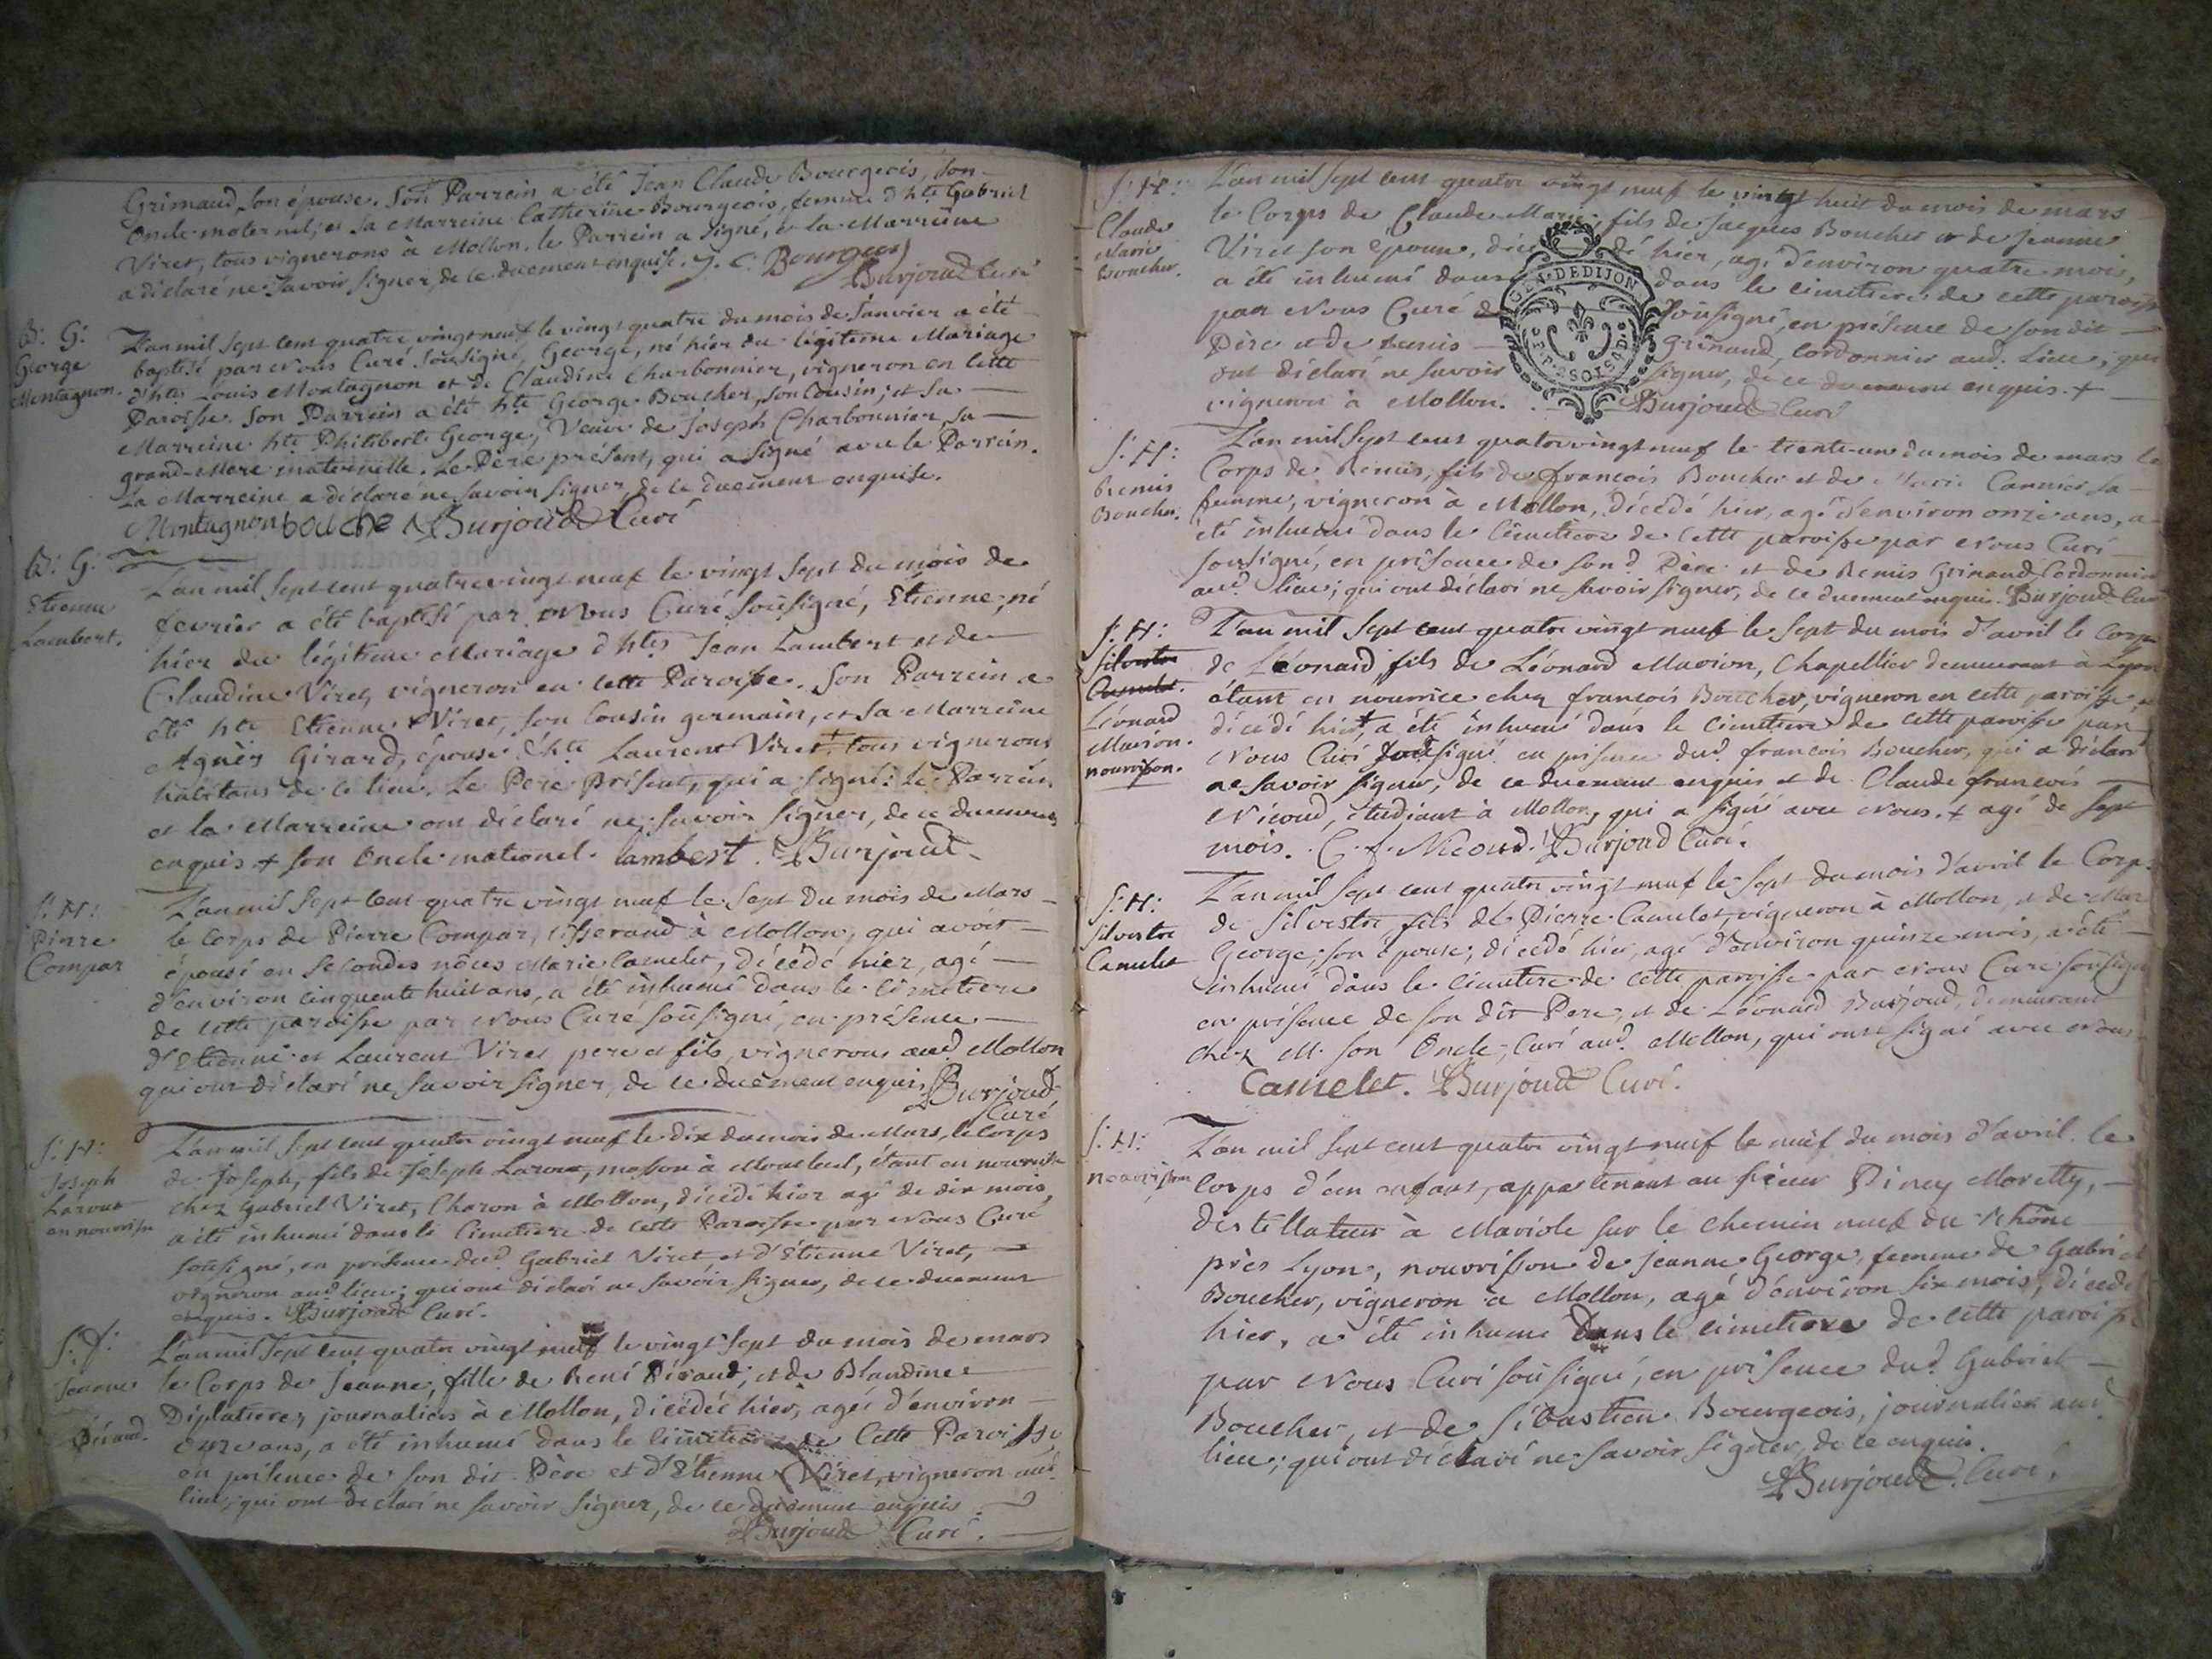 Grimaud, son épouse. Son Parrein a été Jean Claude Bourgeois, son
Oncle maternel; et sa Marreine Catherine Bourgeois, femme d'hte Gabriel
Viret, tous vignerons à Mollon. le Parrein a signé, et la Marreine
a déclaré ne savoir signer, de ce duement enquise. J. C. Bourgeois
Burjoud Curé
B: G:
George
Montagnon.
L'an mil sept cent quatre vingt neuf le vingt quatre du mois de Janvier a été
baptisé par Nous Curé soussigné, George, né hier du légitime Mariage
d'htes Louis Montagnon et de Claudine Charbonnier, vigneron en cette
Paroisse. Son Parrein a été hte George Boucher, son Cousin; et sa
Marreine hte Philiberte George, Veuve de Joseph Charbonnier, sa
grand-Mere maternelle. Le Père présent, qui a signé avec le Parrein.
La Marreine a déclaré ne savoir signer, de ce duement enquise.
Montagnon bouche Burjoud Curé
B: G.
Etienne
Lambert.
L'an mil sept cent quatre vingt neuf le vingt sept du mois de
fevrier a été baptisé par Nous Curé soussigné, Etienne, né
hier du légitime Mariage d'htes Jean Lambert et de
Claudine Viret, vigneron en cette Paroisse. Son Parrein a
été hte Etienne Viret, son Cousin germain, et sa Marreine
Agnès Girard, épouse d'hte Laurent Viret + tous vignerons
habitans de ce lieu. Le Pere Présent, qui a signé: Le Parrein
et la Marreine ont déclaré ne savoir signer, de ce duement
enquis + son Oncle maternel. lambert. Burjoud.
S: H:
Pierre
Compar
L'an mil sept cent quatre vingt neuf le sept du mois de Mars
le Corps de Pierre Compar, tisserand à Mollon, qui avoit
épousé en secondes nôces Marie Camelet, décédé hier, agé
d'environ cinquante huit ans, a été inhumé dans le cimetiere
de cette paroisse par Nous Curé soussigné, en présence
d'Etienne et Laurent Viret pere et fils, vignerons aud. Mollon
qui ont déclaré ne savoir signer, de ce duement enquis. Burjoud
Curé
S: H:
Joseph
en nourrisse
L'an mil sept cent quatre vingt neuf le dix du mois de Mars, le Corps
de Joseph, fils de Joseph masson à étant en nourrisse
chez Gabriel Viret, Charon à Mollon, décédé hier agé de dix mois,
a été inhumé dans le Cimetiere de cette Paroisse par Nous Curé
soussigné, en présence dud. Gabriel Viret et d'Etienne Viret,
vigneron aud. lieu; qui ont déclaré ne savoir signer, de ce duement
enquis. Burjoud Curé.
S: f:
Jeanne
Péraud.
L'an mil sept cent quatre vingt neuf le vingt sept du mois de mars
le Corps de Jeanne, fille de René Péraud, et de Blandine
journaliers à Mollon, décédée hier, agée d'environ
onze ans, a été inhumé dans le cimetiere de Cette Paroisse
en présence de son dit Père et d'Etienne Viret, vigneron aud.
lieu; qui ont déclaré ne savoir signer, de ce duement enquis.
Burjoud Curé.
S: H:
Claude
Marie
Boucher.
L'an mil sept cent quatre vingt neuf le vingt huit du mois de mars
le Corps de Claude Marie fils de Jacques Boucher et de Jeanne
Viret son épouse, décédé hier, agé d'environ quatre mois,
a été inhumé dans dans le cimetiere de cette paroisse
par Nous Curé soussigné, en présence de son dit
Père et de Remis Grimaud, Cordonnier aud. Lieu; qui
ont déclaré ne savoir signer, de ce duement enquis. +
vigneron à Mollon. Burjoud Curé
GEN. DE DIJON
S: H:
Remis
Boucher.
L'an mil sept cent quatre vingt neuf le trente-un du mois de mars le
Corps de Remis, fils de francois Boucher et de Marie sa
femme, vigneron à Mollon, décédé hier, agé d'environ onze ans, a
été inhumé dans le Cimetiere de Cette paroisse par Nous Curé
soussigné, en présence de son d. Père et de Remis Grimaud, Cordonnier
aud. lieu; qui ont déclaré ne savoir signer, de ce duement enquis. Burjoud Curé
S: H:
Silvestre
Camelet.
Léonard
Marion.
nourrisson.
L'an mil sept cent quatre vingt neuf le sept du mois d'avril le Corps
de Léonard, fils de Léonard Marion, Chapellier demeurant à Lyon
étant en nourrice chez francois Boucher, vigneron en cette paroisse,
décédé hier +, a été inhumé dans le Cimetiere de cette paroisse par
Nous Curé soussigné en présence dud. francois Boucher, qui a déclaré
ne savoir signer, de ce duement enquis et de Claude francois
Nicoud, étudiant à Mollon, qui a signé avec Nous. + agé de sept
mois. C. f. Nicoud. Burjoud Curé.
S: H:
Silvestre
Camelet
L'an mil sept cent quatre vingt neuf le sept du mois d'avril le Corps
de Silvestre, fils de Pierre Camelet, vigneron à Mollon, et de Marie
George, son épouse; décédé hier, agé d'environ quinze mois, a été
inhumé dans le cimetiere de cette paroisse par Nous Curé soussigné
en présence de son dit Pere, et de Léonard Burjoud, demeurant
chez M. son Oncle, Curé aud. Mollon, qui ont signé avec Nous
Camelet. Burjoud Curé.
S: H:
nourrisson
L'an mil sept cent quatre vingt neuf le neuf du mois d'avril le
Corps d'un enfant, appartenant au sieur Piney Moretty,
distellateur à Mariole sur le chemin neuf du Rhône
près Lyon, nourrisson de Jeanne George, femme de Gabriel
Boucher, vigneron à Mollon, agé d'environ six mois, décédé
hier, a été inhumé Dans le cimetiere de cette paroisse
par Nous Curé soussigné, en présence dud. Gabriel
Boucher, et de Sébastien Bourgeois, journalier aud.
lieu; qui ont déclaré ne savoir signer, de ce enquis.
Burjoud. Curé.